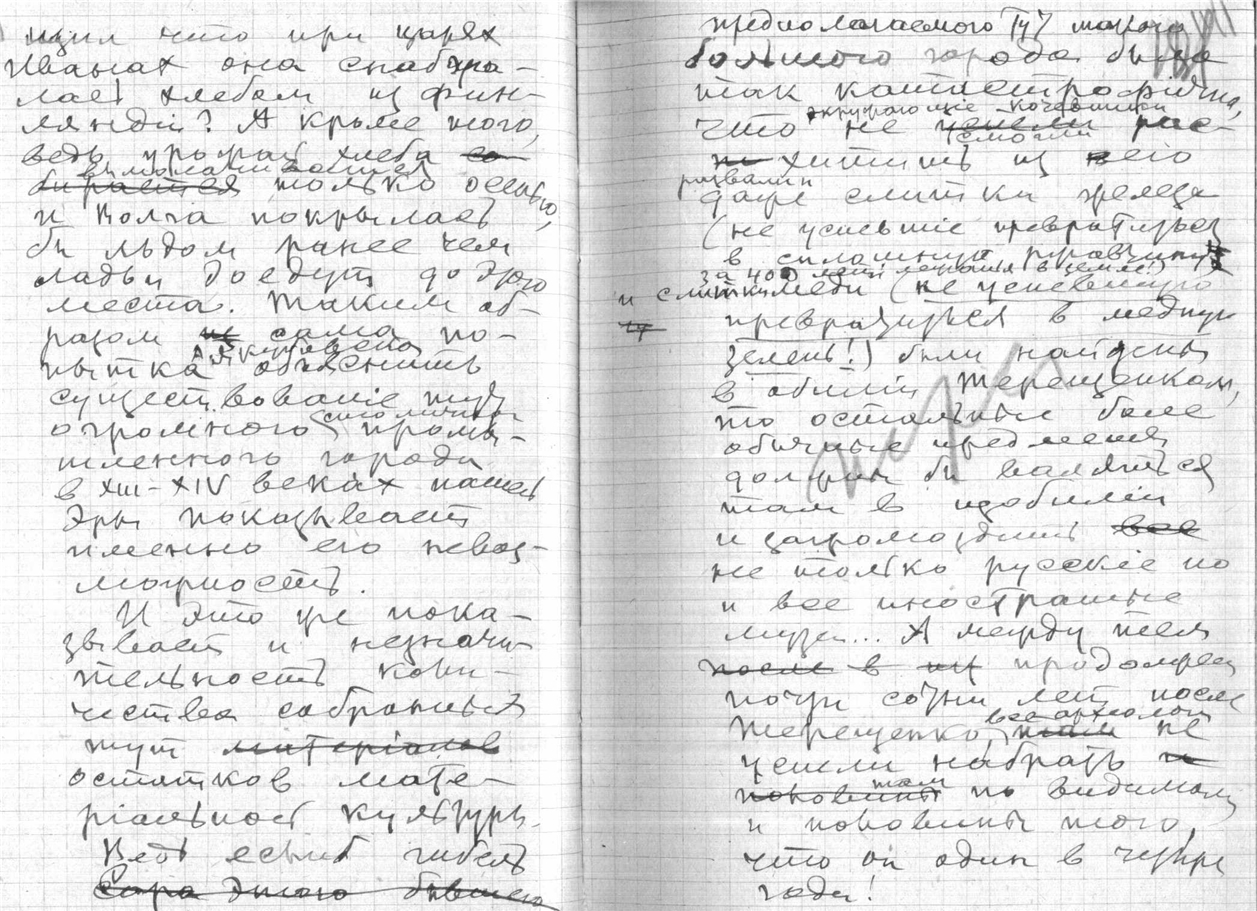 что при царях
Иванах она снабжа-
лась хлебом из Фин-
ляндіи? А кроме того,
ведь урожай хлеба со-
вымолачивается
бирается только осенью,
и Волга покрылась
бы льдом ранее чем
ладьи доедут до этого
места. Таким об-
разом из сама по-
пытка Якубовского объяснить
существованіе тут
огромного столичного промы-
шленного города
в XIII-XIV веках нашей
эры показывает
именно его невоз-
можность.
И это же пока-
зывает и незначи-
тельность коли-
чества собранных
тут матеріалов
остатков мате-
ріальной культуры.
Ведь если б гибель
Сарая этого бывшего
предполагаемого тут такого
большого города была
так катастрофична,
окружающіе кочевники
что не успели рас-
смогли
хитить из него
развалин
даже слитки железа
(не успевшіе превратиться
в сплошную ржавчину
за 400 лет лежания в земле!)
и слитки меди (не успевшую
превратиться в медную
зелень!) были найдены
в обиліи Терещенком,
то остальные более
обычные предметы
должны бы валяться
там в изобиліи
и загромоздить все
не только русскіе но
и все иностранные
музеи... А между тем
после в их продолжен
почти сотни лет после
Терещенко, все археологи там не
успели набрать и
половины там по видимому
и половины того,
что он один в четыре
года!